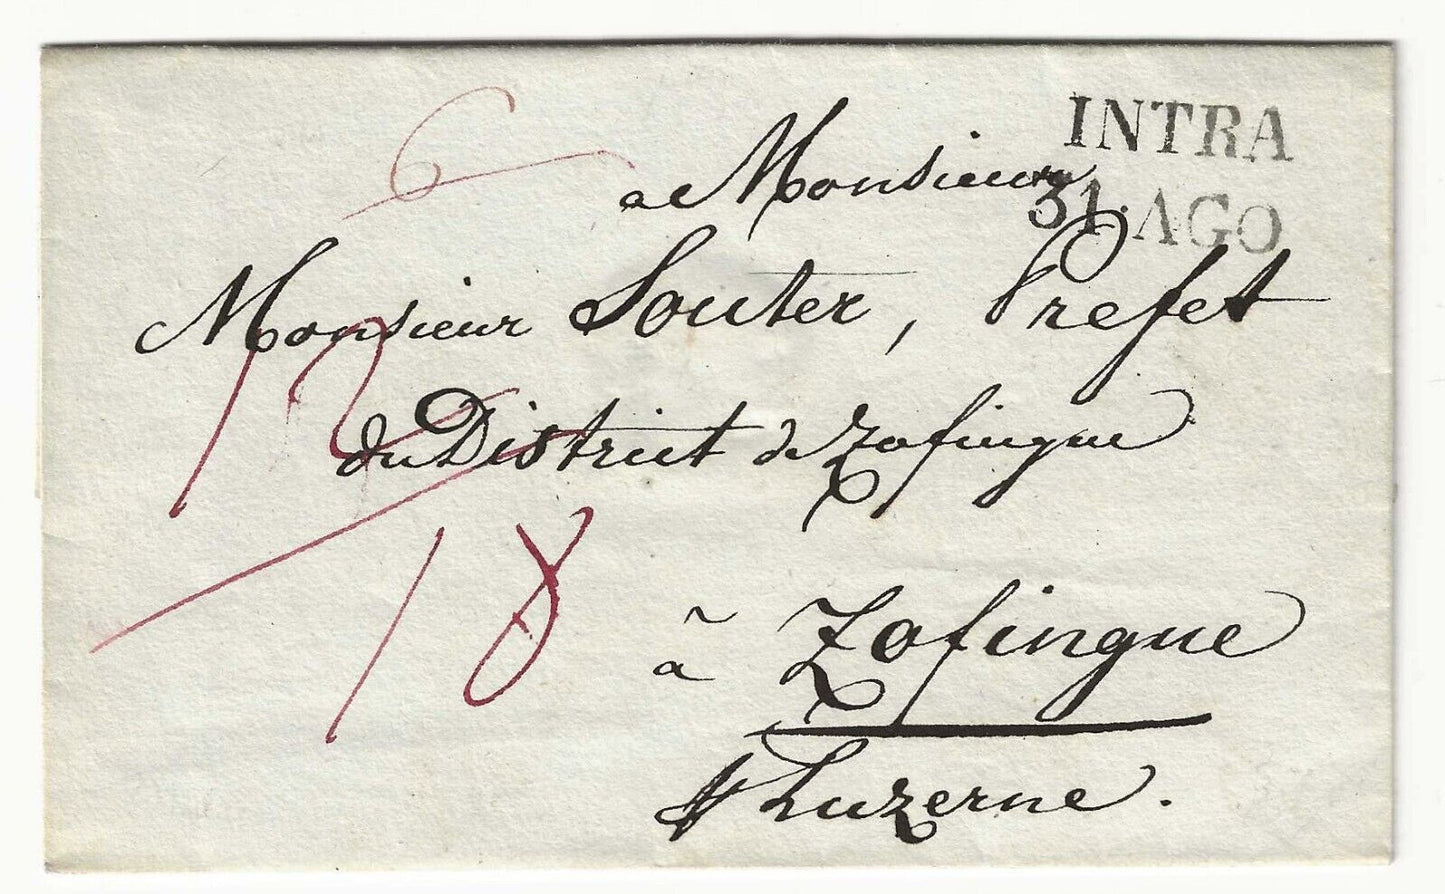 INTRA
31 AGO
6
a Monsieur
Monsieur Souter, Prefet
12
du District de Zofingue
18
à Zofingue
Luzerne.